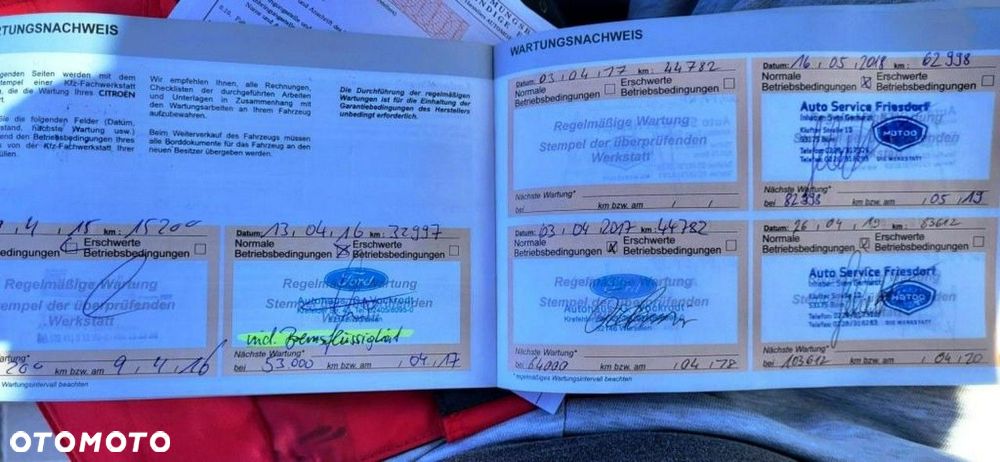 RTUNGSNACHWEIS
genden Seiten werden mit dem
empel einer Kfz-Fachwerkstatt
die die Wartung Ihres CITROËN
Sie die folgenden Felder (Datum,
stand, nächste Wartung usw.)
end den Betriebsbedingungen Ihres
von der Kfz-Fachwerkstatt Ihrer
üllen.
Wir empfehlen Ihnen, alle Rechnungen,
Checklisten der durchgeführten Arbeiten
und Unterlagen in Zusammenhang mit
den Wartungsarbeiten an Ihrem Fahrzeug
aufzubewahren.
Beim Weiterverkauf des Fahrzeugs müssen
alle Borddokumente für das Fahrzeug an den
neuen Besitzer übergeben werden.
Die Durchführung der regelmäßigen
Wartungen ist für die Einhaltung der
Garantiebedingungen des Herstellers
unbedingt erforderlich.
4 . 15 km: 15200
Erschwerte
edingungen Betriebsbedingungen
Regelmäßige Wartung
Stempel der überprüfenden
Werkstatt
artung*
200 km bzw. am 9.4.16
Wartungsintervall beachten
Datum: 13,04,16 km: 32997
Normale Erschwerte
Betriebsbedingungen Betriebsbedingungen
Regelmäßige Wartung
Ford
Stempel der überprüfenden
incl. Bremsflüssigkeit
Nächste Wartung*
bei 53000 km bzw. am ,04,17
WARTUNGSNACHWEIS
Datum: 03,04,17 km: 44782
Normale Erschwerte
Betriebsbedingungen Betriebsbedingungen
Regelmäßige Wartung
Stempel der überprüfenden
Werkstatt
Nächste Wartung*
bei km bzw. am / /
Datum: 03,04,2017 km: 44782
Normale Erschwerte
Betriebsbedingungen Betriebsbedingungen
Regelmäßige Wartung
Ford
Stempel der überprüfenden
Nächste Wartung*
bei 64000 km bzw. am ,04,18
* regelmäßiges Wartungsintervall beachten
Datum: 16,05,2018 km: 62998
Normale Erschwerte
Betriebsbedingungen Betriebsbedingungen
Auto Service Friesdorf
Inhaber: Sven Gerhardt
Klufter Straße 15
53175 Bonn
MOTOO
DIE WERKSTATT
Nächste Wartung*
bei 82998 km bzw. am ,05,19
Datum: 26,04,19 km: 83612
Normale Erschwerte
Betriebsbedingungen Betriebsbedingungen
Auto Service Friesdorf
Inhaber: Sven Gerhardt
MOTOO
DIE WERKSTATT
Nächste Wartung*
bei 103612 km bzw. am ,04,20
OTOMOTO